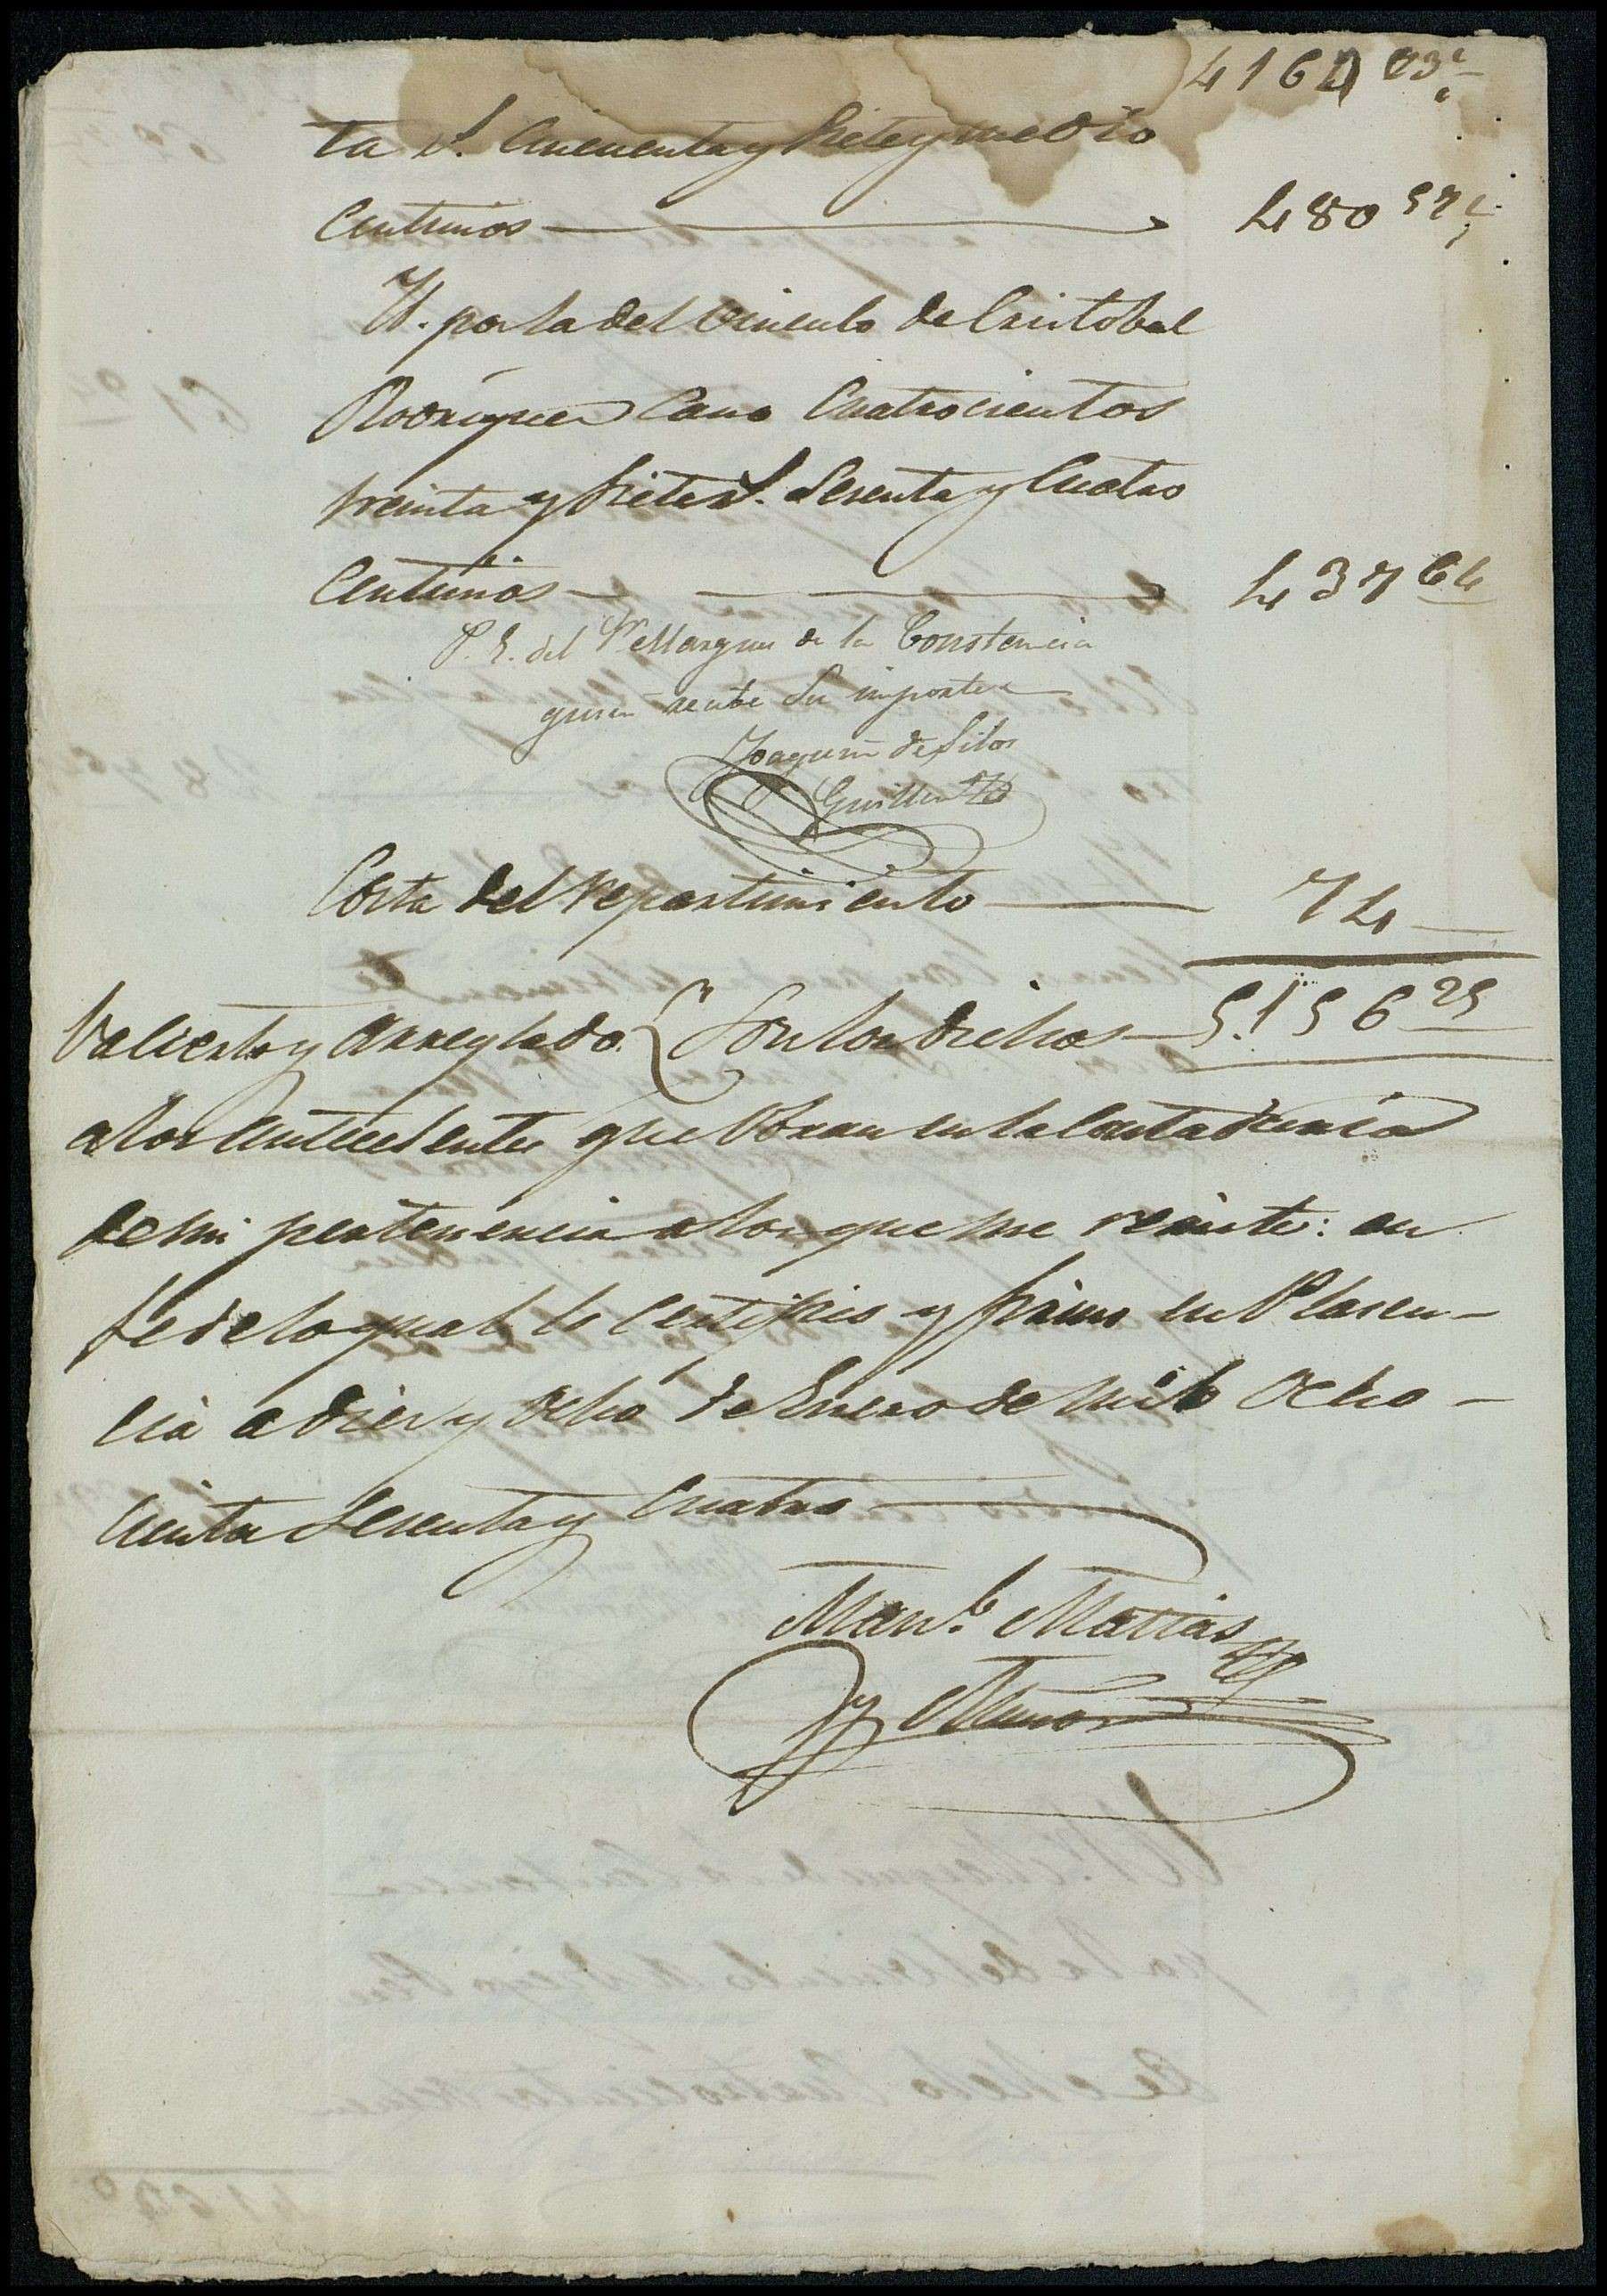 4164 03½
ta r.s Cincuenta y Siete y medio
Centimos — 480 57½
Yt. por la del Vinculo de Cristobal
Rodriguez Cano Cuatrocientos
treinta y siete r.s Sesenta y Cuatro
Centimos — 437 64
P. E. del Sr Marques de la Constancia
quien recibe su importe
Joaquin de Silos
Guillen
Costa del repartimiento — 74 —
Va cierto y arreglado { Son los dichos — 5.156 25
a los antecedentes que obran en la Contaduria
de mi pertenencia a los que me remito: en
fe de lo qual, lo Certifico y firmo en Plasen-
cia a diez y ocho de Enero de mil ocho-
cientos Sesenta y Cuatro
Man.l Matias
y Muñoz